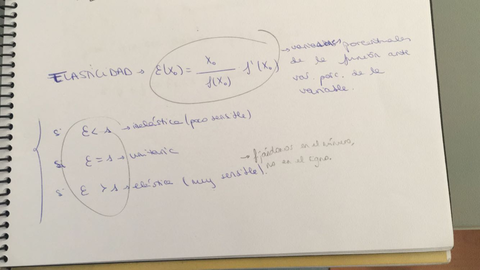 ELASTICIDAD → E(x₀) = x₀ / f(x₀) f'(x₀) → variaciones porcentuales
de la función ante
var. porc. de la
variable.
si E < 1 → inelástica (poco sensible)
si E = 1 → unitaria
si E > 1 → elástica (muy sensible)
→ fijándonos en el número,
no en el signo.